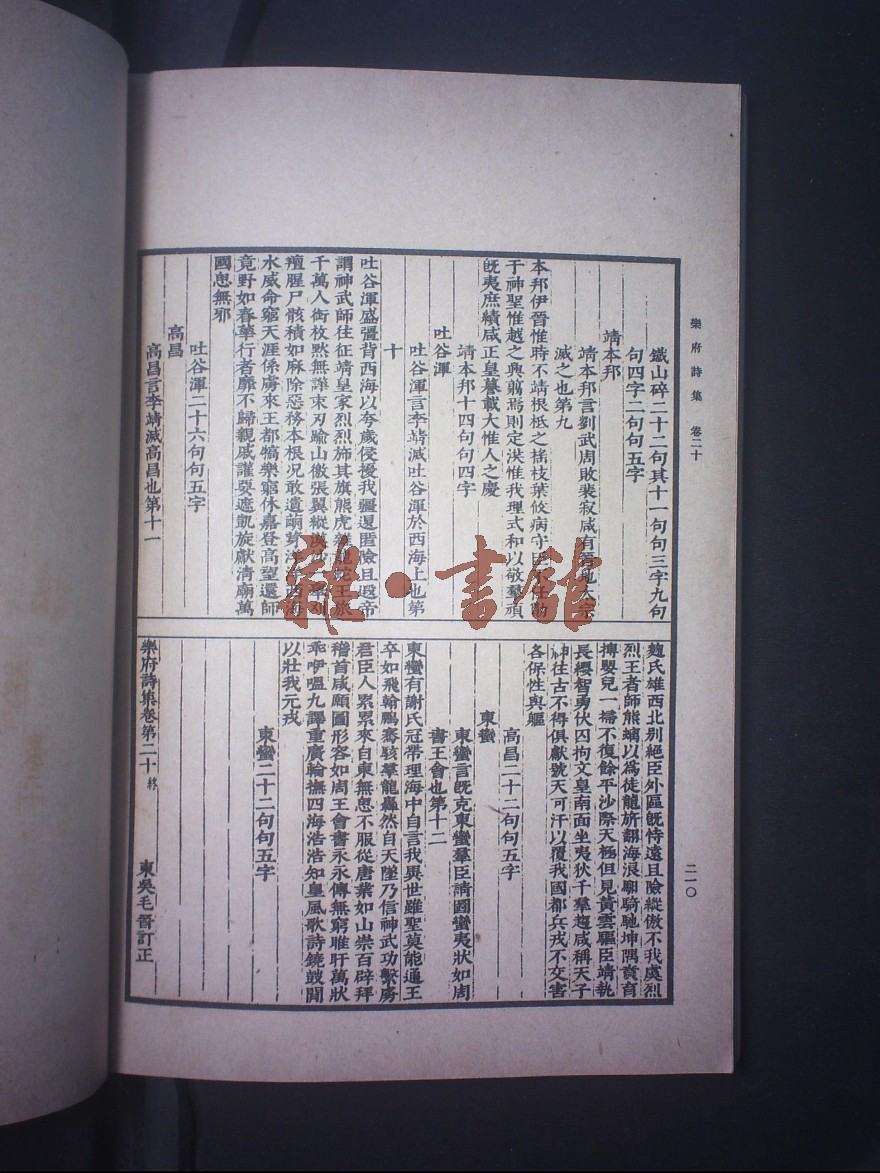 樂府詩集 卷二十
二一〇
鐵山碎二十二句其十一句句三字九句
句四字二句句五字
靖本邦
靖本邦言劉武周敗裴寂咸有晉地太宗
滅之也第九
本邦伊晉惟時不靖根柢之搖枝葉攸病守臣不任勩
于神聖惟鉞之興翦焉則定洪惟我理式和以敬羣頑
旣夷庶績咸正皇謩載大惟人之慶
靖本邦十四句句四字
吐谷渾
吐谷渾言李靖滅吐谷渾於西海上也第
十
吐谷渾盛彊背西海以夸歲侵擾我疆退匿險且遐帝
謂神武師往征靖皇家烈烈旆其旗熊虎雜龍蛇王旅
千萬人銜枚黙無譁束刃踰山徼張翼縱漠沙一舉刈
羶腥尸骸積如麻除惡務本根况敢遺萌芽洋洋西海
水威命窮天涯係虜來王都犒樂窮休嘉登高望還師
竟野如春華行者靡不歸親戚讙要遮凱旋獻清廟萬
國思無邪
吐谷渾二十六句句五字
高昌
高昌言李靖滅高昌也第十一
麴氏雄西北别絕臣外區旣恃遠且險縱傲不我虞烈
烈王者師熊螭以爲徒龍旂翻海浪馹騎馳坤隅賁育
摶嬰兒一掃不復餘平沙際天極但見黃雲驅臣靖執
長纓智勇伏囚拘文皇南面坐夷狄千羣趨咸稱天子
神往古不得俱獻號天可汗以覆我國都兵戎不交害
各保性與軀
高昌二十二句句五字
東蠻
東蠻言旣克東蠻羣臣請圖蠻夷狀如周
書王會也第十二
東蠻有謝氏冠帶理海中自言我異世雖聖莫能通王
卒如飛翰鵬鶱駭羣龍轟然自天墜乃信神武功繫虜
君臣人累累來自東無思不服從唐業如山崇百辟拜
稽首咸願圖形容如周王會書永永傳無窮睢盱萬狀
乖咿嗢九譯重廣輪撫四海浩浩知皇風歌詩鐃鼓閒
以壯我元戎
東蠻二十二句句五字
樂府詩集卷第二十 終
東吳毛晉訂正
雜·書館